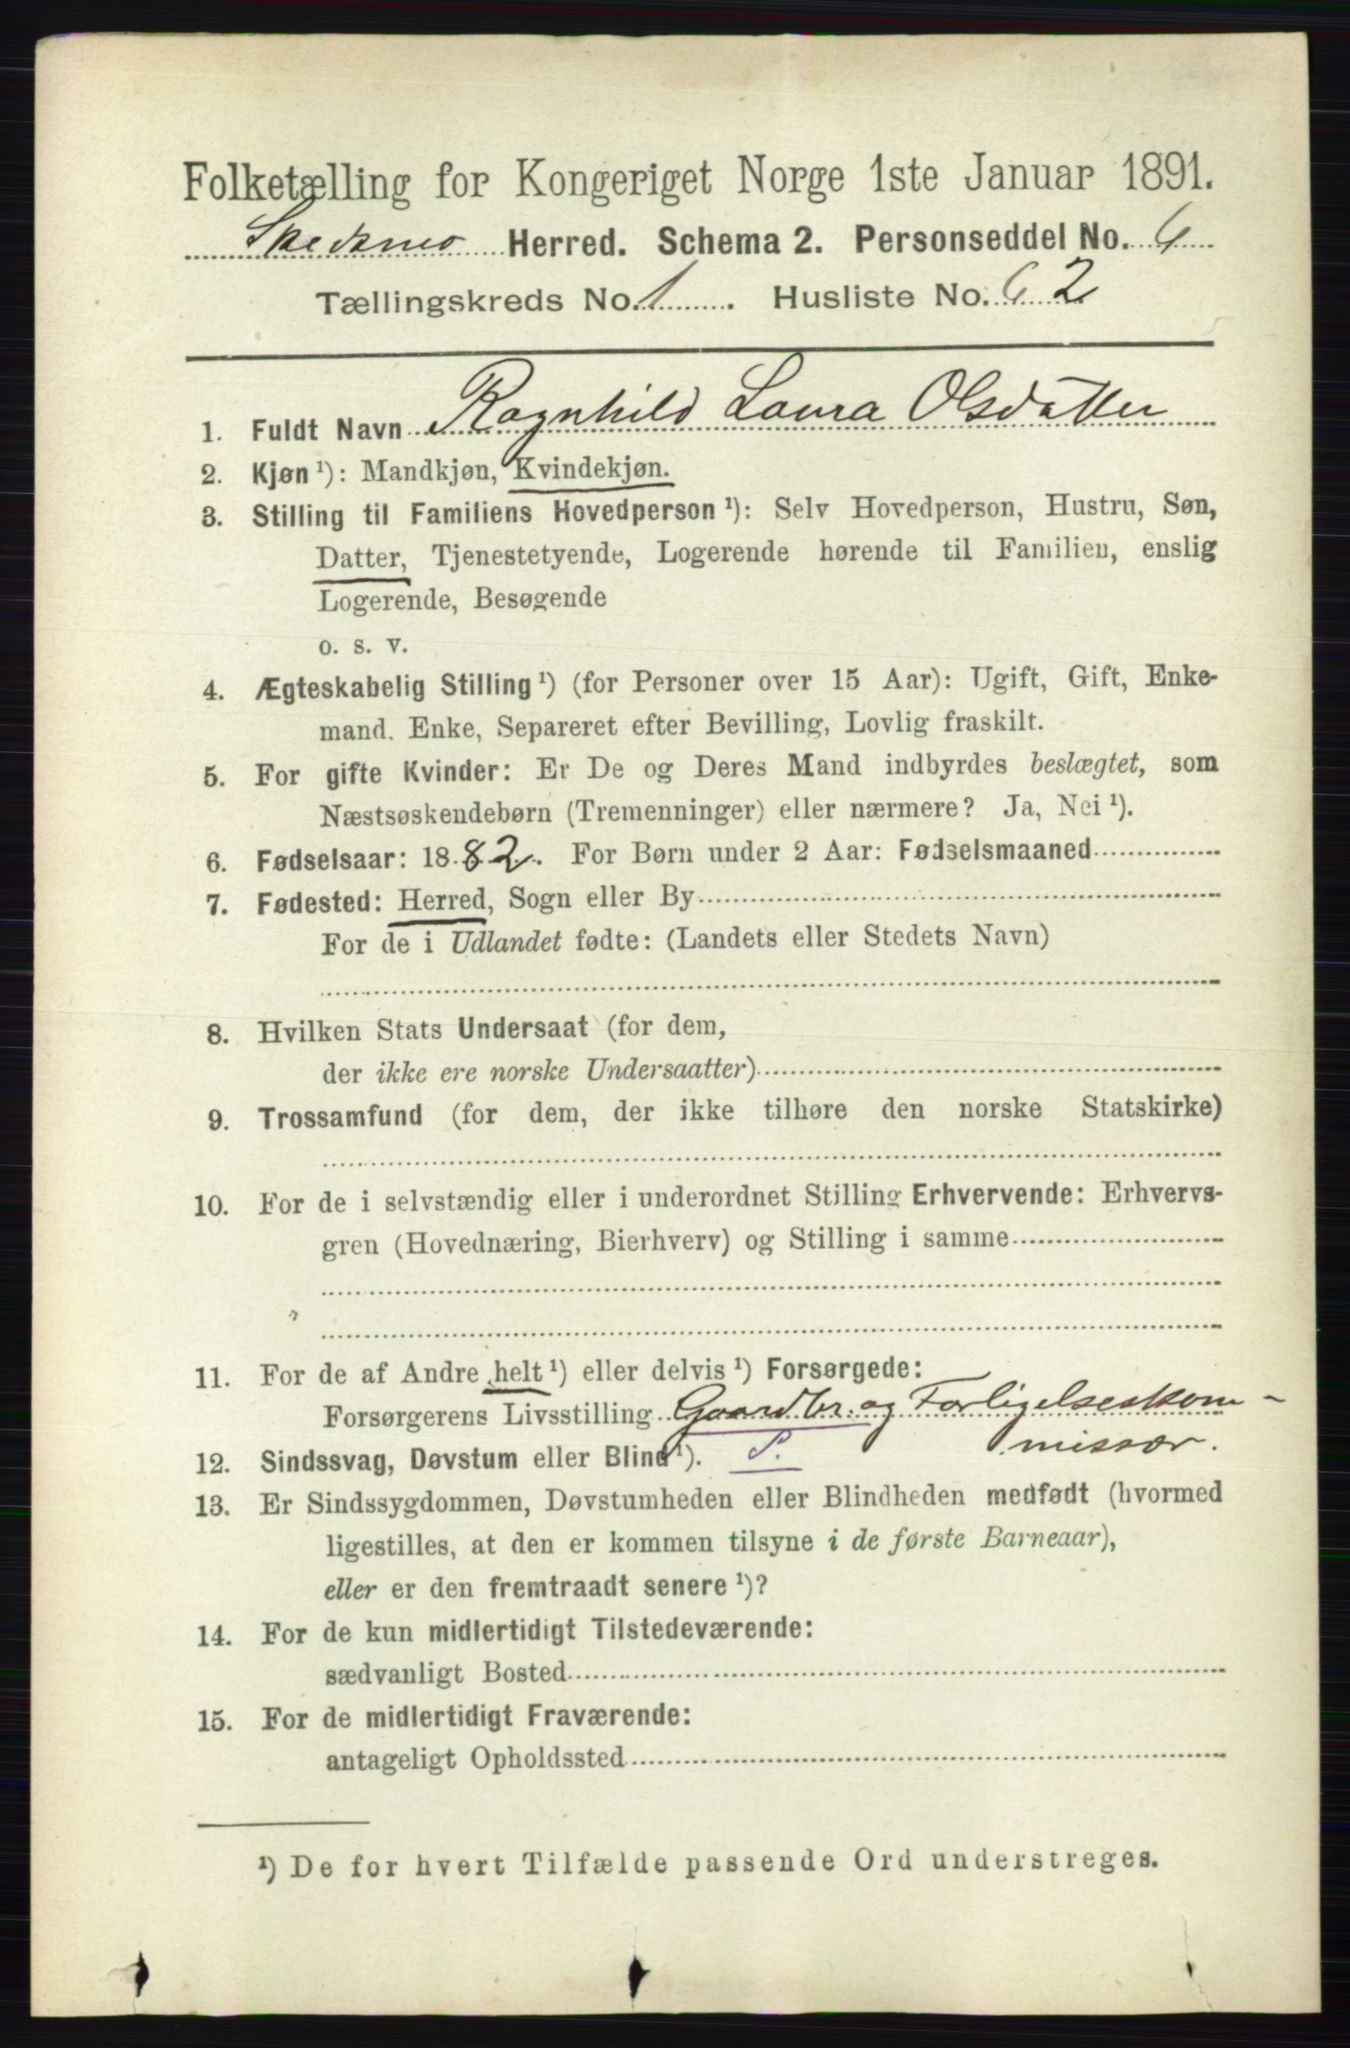 Folketælling for Kongeriget Norge 1ste Januar 1891.
Skedsmo Herred. Schema 2. Personseddel No. 6
Tællingskreds No. 1. Husliste No. 62
1. Fuldt Navn Ragnhild Laura Olsdatter
2. Kjøn ¹): Mandkjøn, Kvindekjøn.
3. Stilling til Familiens Hovedperson ¹): Selv Hovedperson, Hustru, Søn,
Datter, Tjenestetyende, Logerende hørende til Familien, enslig
Logerende, Besøgende
o. s. v.
4. Ægteskabelig Stilling ¹) (for Personer over 15 Aar): Ugift, Gift, Enke-
mand. Enke, Separeret efter Bevilling, Lovlig fraskilt.
5. For gifte Kvinder: Er De og Deres Mand indbyrdes beslægtet, som
Næstsøskendebørn (Tremenninger) eller nærmere? Ja, Nei ¹).
6. Fødselsaar: 1882. For Børn under 2 Aar: Fødselsmaaned
7. Fødested: Herred, Sogn eller By
For de i Udlandet fødte: (Landets eller Stedets Navn)
8. Hvilken Stats Undersaat (for dem,
der ikke ere norske Undersaatter)
9. Trossamfund (for dem, der ikke tilhøre den norske Statskirke)
10. For de i selvstændig eller i underordnet Stilling Erhvervende: Erhvervs-
gren (Hovednæring, Bierhverv) og Stilling i samme
11. For de af Andre helt ¹) eller delvis ¹) Forsørgede:
Forsørgerens Livsstilling Gaardbr. og Forligelseskom-
missær.
12. Sindssvag, Døvstum eller Blind ¹). S.
13. Er Sindssygdommen, Døvstumheden eller Blindheden medfødt (hvormed
ligestilles, at den er kommen tilsyne i de første Barneaar),
eller er den fremtraadt senere ¹)?
14. For de kun midlertidigt Tilstedeværende:
sædvanligt Bosted
15. For de midlertidigt Fraværende:
antageligt Opholdssted
¹) De for hvert Tilfælde passende Ord understreges.